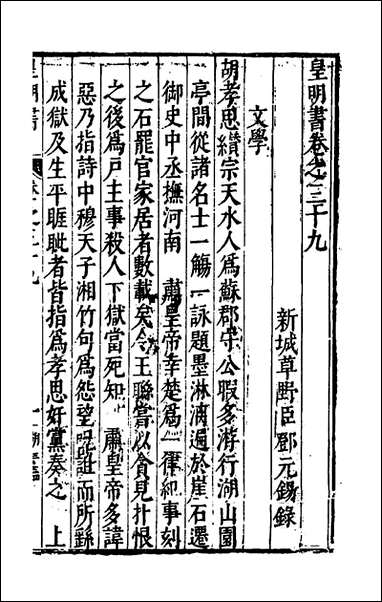 皇明書卷之三十九
新城草野臣鄧元錫錄
文學
胡孝思纘宗天水人為蘇郡守公暇多游行湖山園
亭間從諸名士一觴一詠題墨淋漓遍於崖石遷
御史中丞撫河南 肅皇帝幸楚為一律紀事刻
之石罷官家居者數載矣令王聯嘗以貪見扑恨
之後為戶主事殺人下獄當死知 肅皇帝多諱
惡乃指詩中穆天子湘竹句為怨望咒詛而所繇
成獄及生平睚眦者皆指為孝思奸黨奏之 上